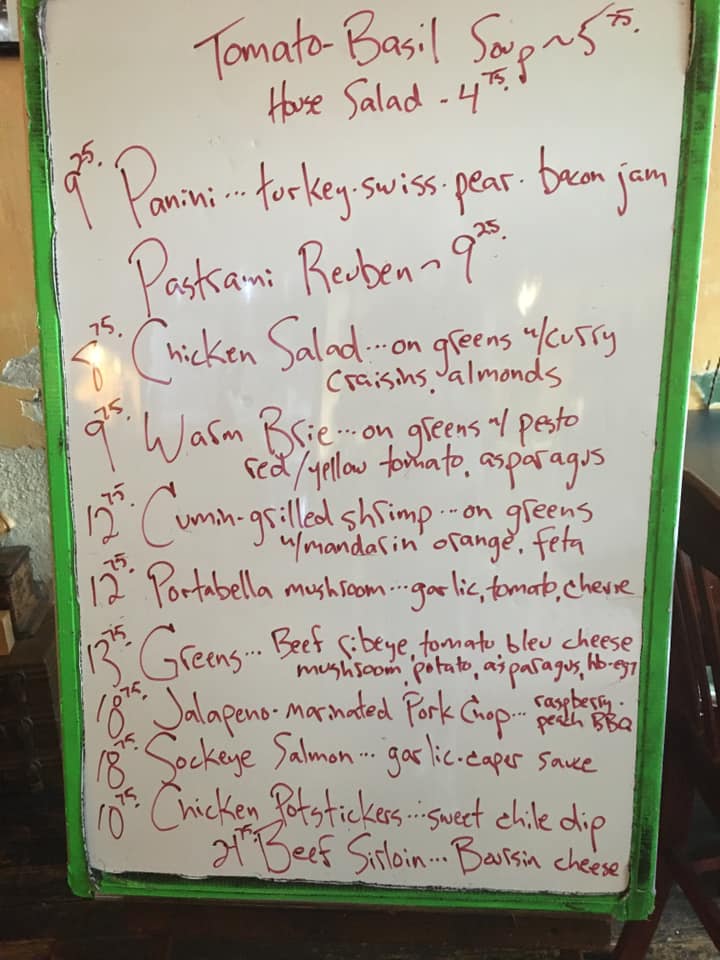 Tomato-Basil Soup ~ 5 75.
House Salad - 4 75.
9 25. Panini... turkey. swiss. pear. bacon jam
Pastrami Reuben ~ 9 25.
8 75. Chicken Salad... on greens w/curry
craisins, almonds
9 75. Warm Brie... on greens w/ pesto
red/yellow tomato, asparagus
12 75. Cumin-grilled shrimp... on greens
w/mandarin orange, feta
12 75. Portabella mushroom... garlic, tomato, chevre
13 75. Greens... Beef ribeye, tomato, bleu cheese
mushroom, potato, asparagus, hb-egg
18 75. Jalapeno-marinated Pork Chop... raspberry-
peach BBQ
18 75. Sockeye Salmon... garlic-caper sauce
10 75. Chicken Potstickers... sweet chile dip
21 75. Beef Sirloin... Boursin cheese